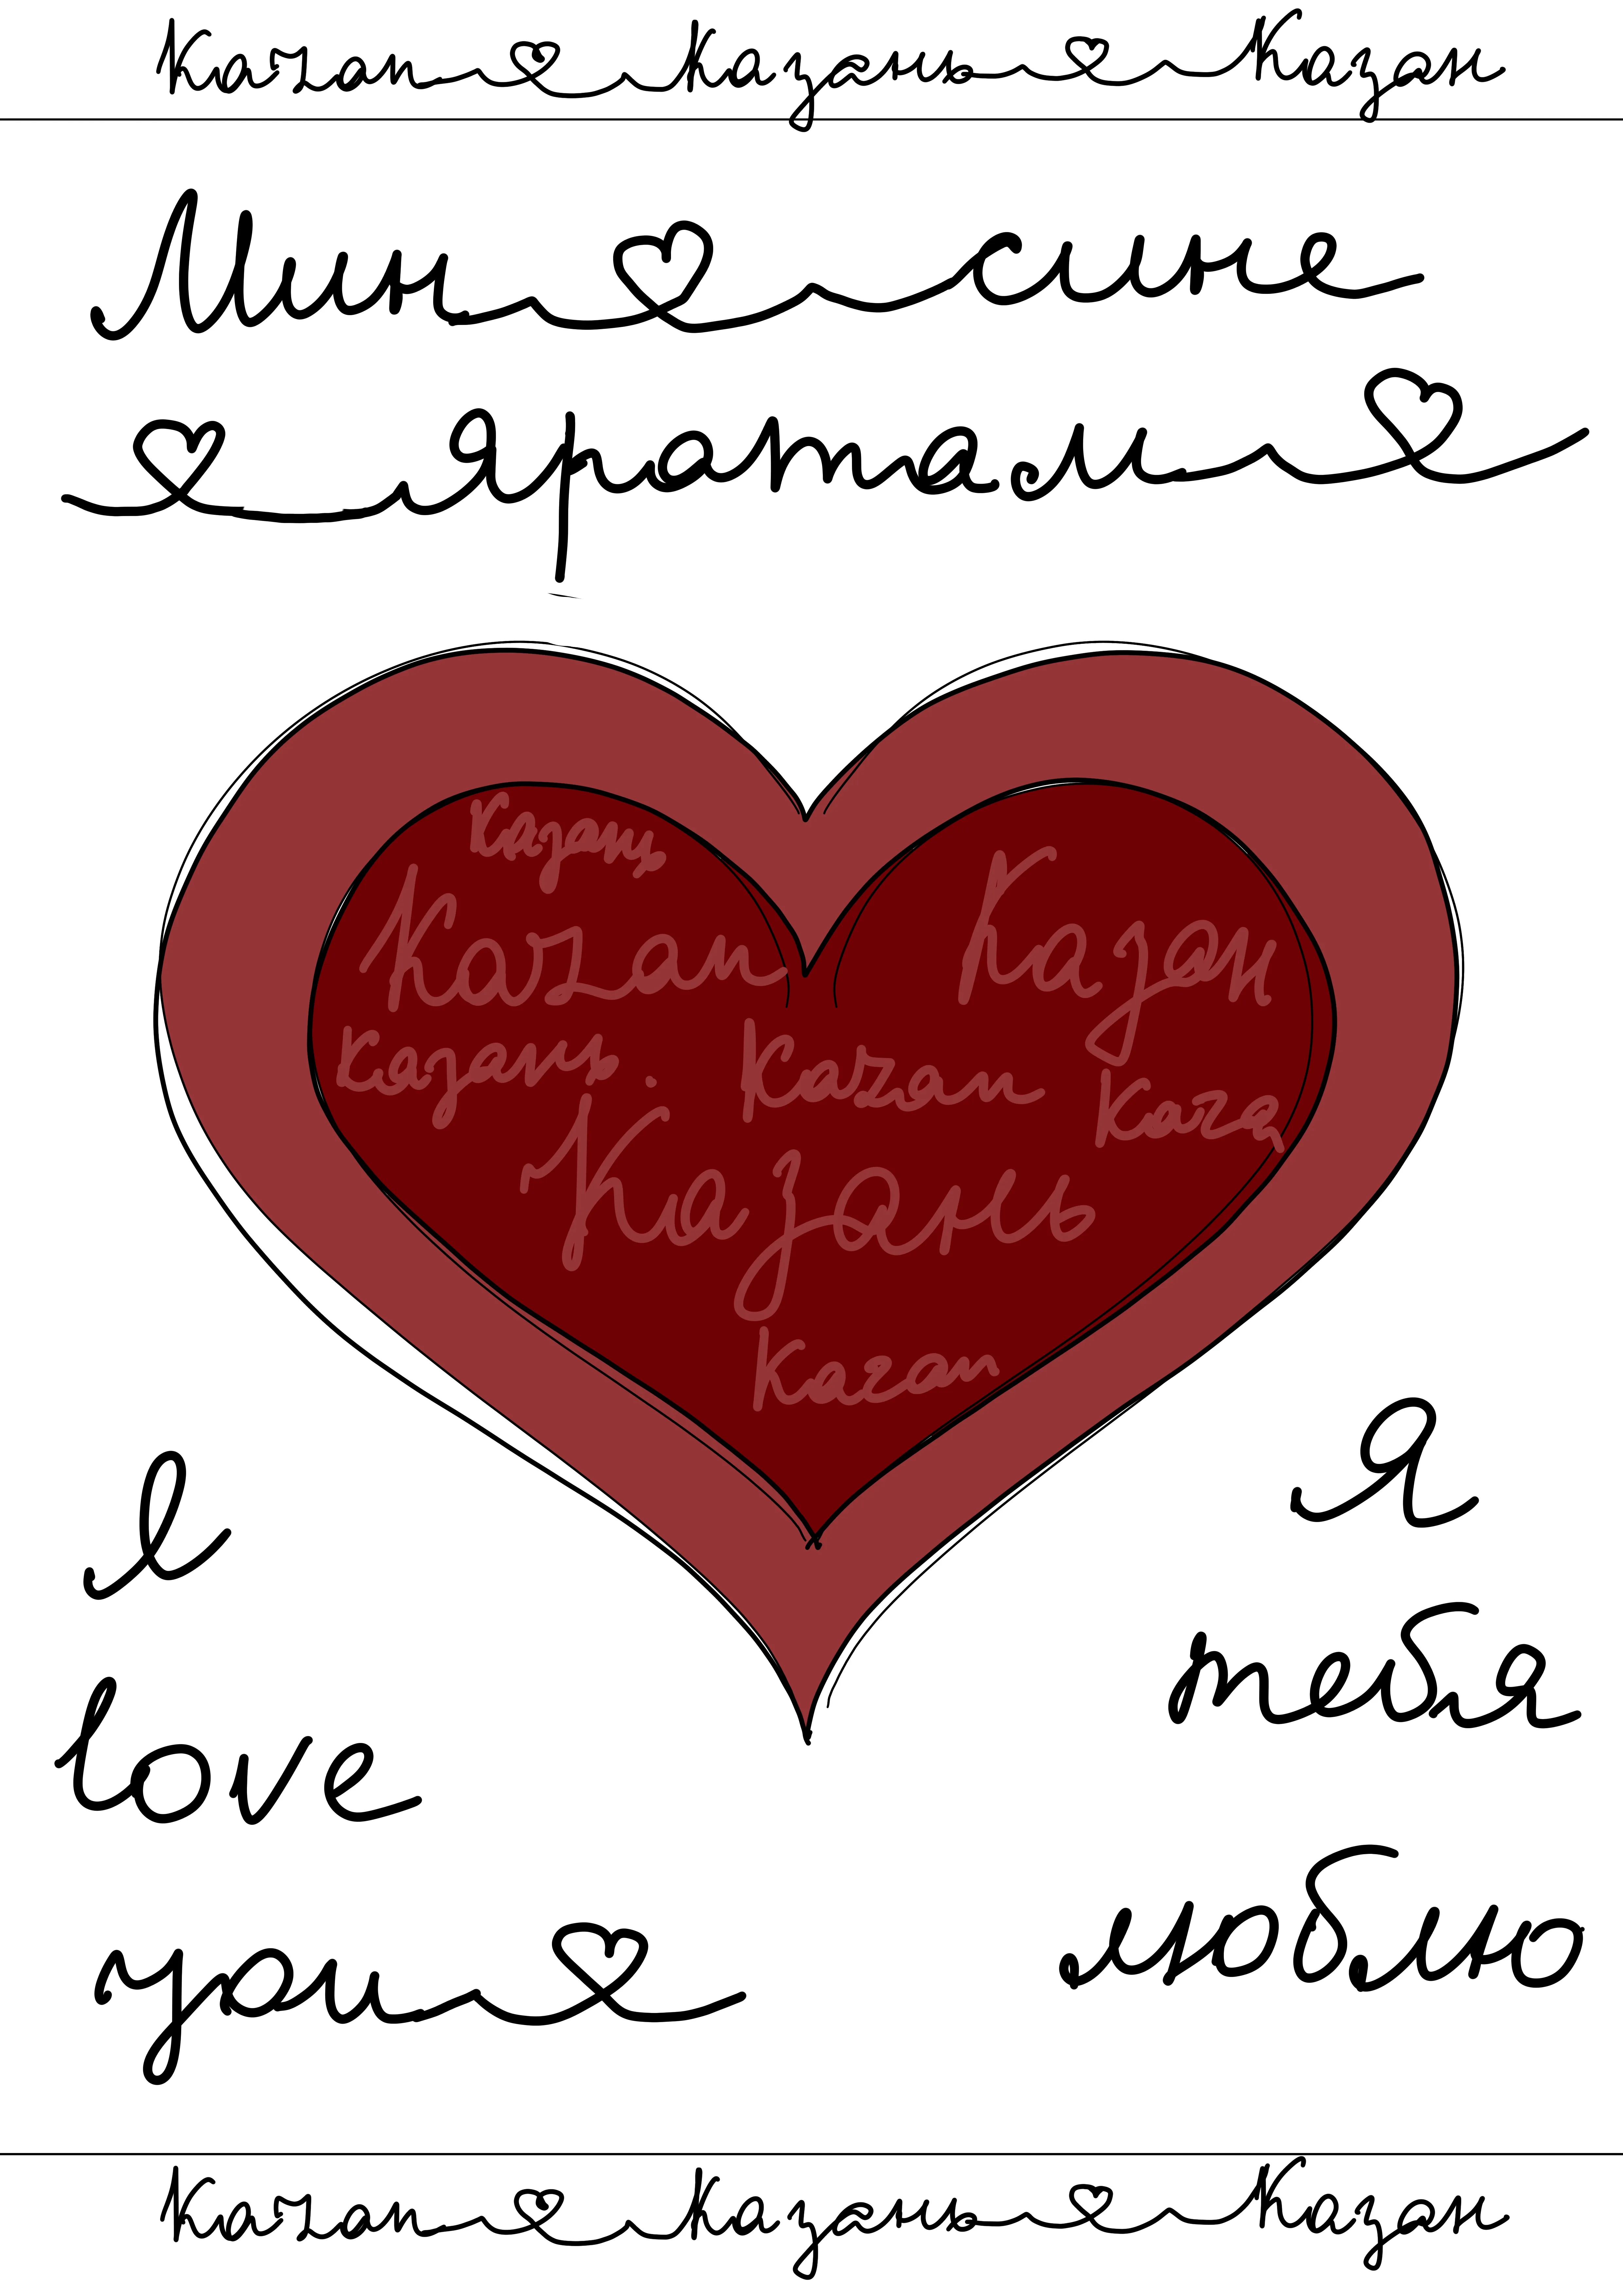 Kazan Казань Казан
Мин сине
яратам
Казань
Kazan Казан
Казань. Kazan Kaza
Казань
Kazan
I
love
you
Я
тебя
люблю
Kazan Казань Казан